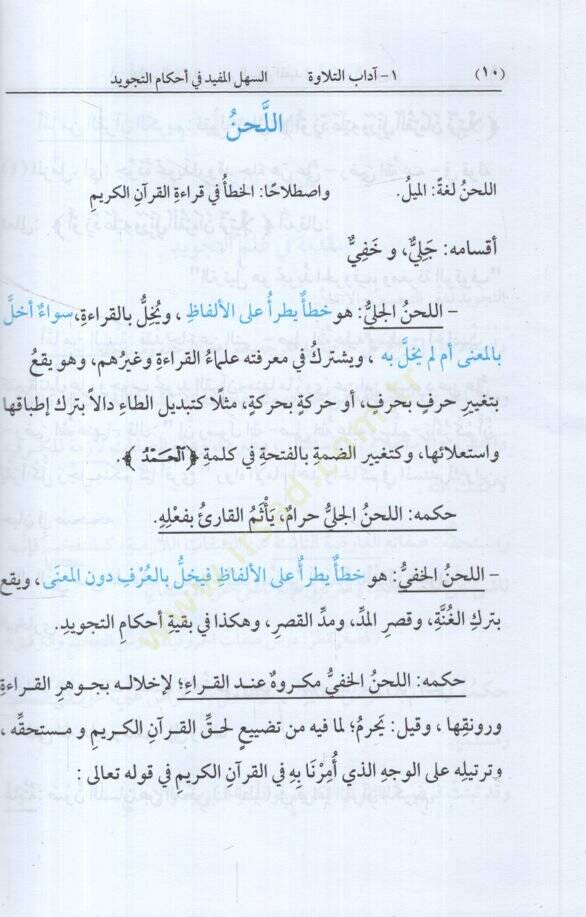 (١٠) ١- آداب التلاوة السهل المفيد في أحكام التجويد
اللَّحنُ
اللحنُ لغةً: الميلُ. واصطلاحًا: الخطأُ في قراءةِ القرآنِ الكريمِ
أقسامه: جَلِيٌّ، و خَفِيٌّ
– اللحنُ الجليُّ: هو خطأٌ يطرأُ على الألفاظِ ، ويُخِلُّ بالقراءةِ، سواءٌ أخلَّ
بالمعنى أم لم يخلَّ به ، ويشتركُ في معرفته علماءُ القراءةِ وغيرُهم، وهو يقعُ
بتغييرِ حرفٍ بحرفٍ، أو حركةٍ بحركةٍ، مثلًا كتبديل الطاءِ دالاً بترك إطباقها
واستعلائها، وكتغيير الضمةِ بالفتحةِ في كلمةِ ﴿الْحَمْدُ﴾.
حكمه: اللحنُ الجليُّ حرامٌ، يَأْثَمُ القارئُ بفعْلِهِ.
– اللحنُ الخفيُّ: هو خطأٌ يطرأُ على الألفاظِ فيخلُّ بالعُرْفِ دون المعنَى، ويقع
بتركِ الغُنَّةِ، وقصرِ المدِّ، ومدِّ القصرِ، وهكذا في بقيةِ أحكامِ التجويدِ.
حكمه: اللحنُ الخفيُّ مكروهٌ عند القراءِ؛ لإخلاله بجوهرِ القراءةِ
ورونقِها ، وقيل: يَحرمُ؛ لما فيه من تضييعٍ لحقِّ القرآنِ الكريمِ و مستحقِّه ،
وترتيلِه على الوجهِ الذي أُمِرْنَا بِهِ في القرآنِ الكريمِ في قوله تعالى :